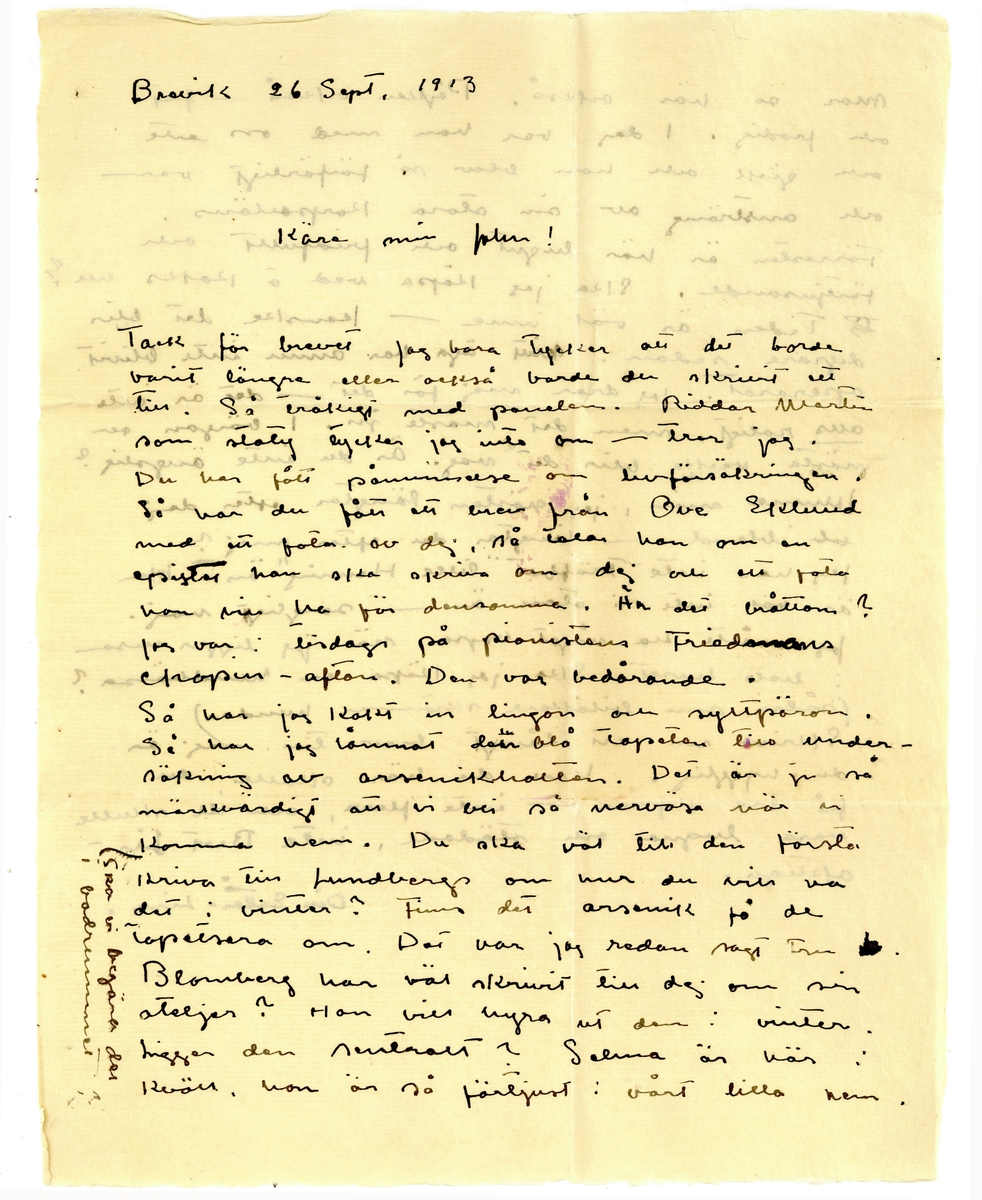 Brevik 26 Sept. 1913
Kära min John!
Tack för brevet. Jag bara tycker att det borde
varit längre eller också borde du skrivit ett
till. Så tråkigt med panelen. Riddar Martin
som staty tycker jag inte om — tror jag.
Du har fått påminnelse om livförsäkringen.
Så har du fått ett brev från Ove Eklund
med ett foto av dej, så talar han om en
epistel han ska skriva om dej och ett foto
han vill ha för densamma. Är det bråttom?
Jag var i tisdags på pianistens Friedmans
Chopin-afton. Den var bedårande.
Så har jag kokt in lingon och syltpäron.
Så har jag lämnat den blå tapeten till under-
sökning av arsenikhalten. Det är ju så
märkvärdigt att vi bli så nervösa när vi
komma hem. Du ska väl till den första
skriva till Lundbergs om hur du vill ha
det i vinter? Finns det arsenik få de
tapetsera om. Det har jag redan sagt
Blomberg har väl skrivit till dej om sin
ateljer? Han vill hyra ut den i vinter.
Ligger den sentralt? Selma är här i
kväll, hon är så förtjust i vårt lilla hem.
(Ska vi begära det
i badrummet